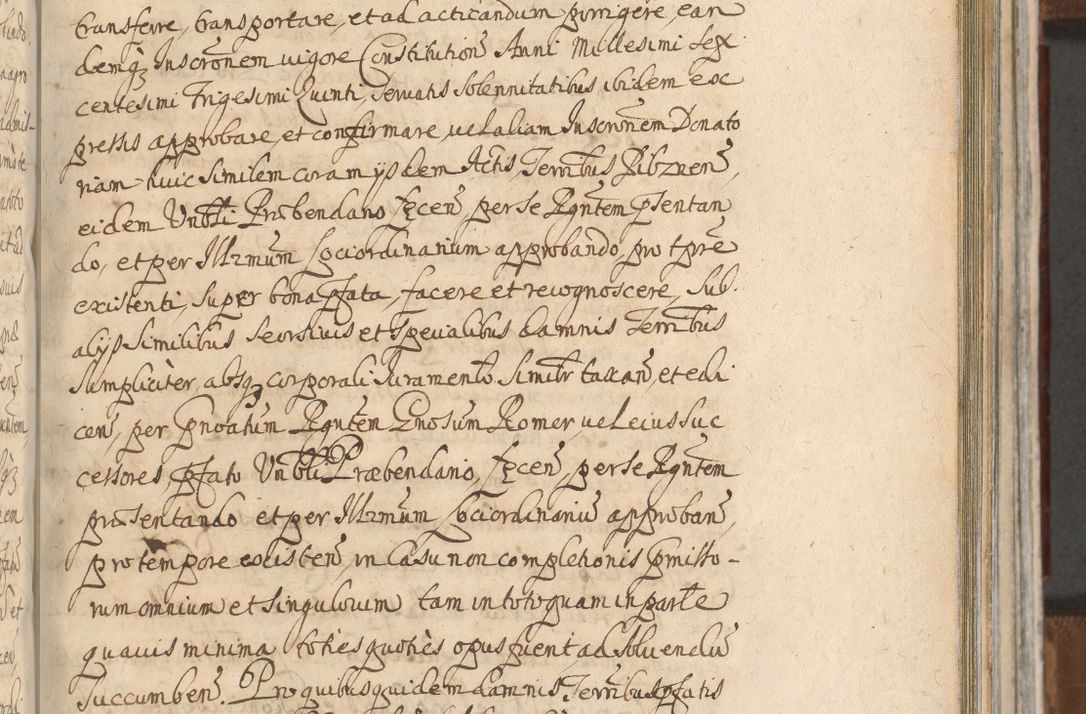 transferre, transportare, et ad acticandum porrigere, ean
demq₃ Inscronem vigore Constitution Anni Millesimi Sex
centesimi Trigesimi Quinti, servatis solennitatibus ibidem ex
pressis approbare, et confirmare, vel aliam Inscronem Donato
riam huic similem coram ijsdem Actis, Terribus Bibznen,
eidem Vnbli Præbendario, per se Rgntem pñtentan
do, et per Illrmum Lociordinarium approbando, pro tpre
existenti, super bona pfata, facere et recognoscere, sub
alijs similibus seorsivis et specialibus damnis Terribus
simpliciter, absq₃ corporali Iuramento similr taxan, et edi
cen, per pnoatum Rgntem Gnosum Romer vel eius suc
cessores, pfato Vnbli Præbendario, per se Rgntem
præsentando et per Illrmum Lociordinariu approban,
pro tempore existen, in casu non completionis pmisso-
rum omnium et singulorum tam in toto quam in parte
quavis minima toties quoties opus fuerit, ad solvendu
succumben. Pro quibus quidem damnis Terribus pfatis